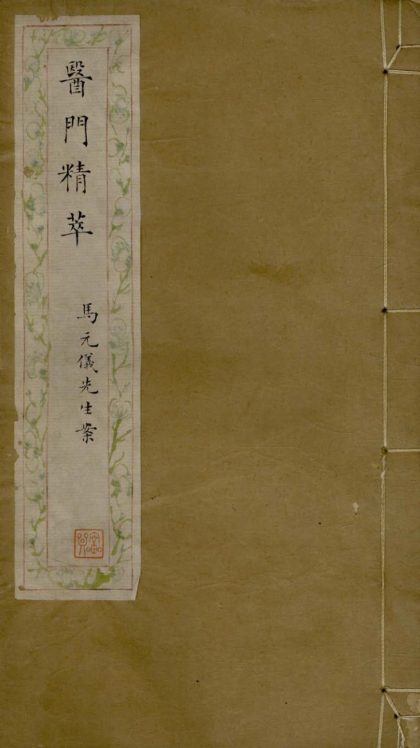 醫門精萃
馬元儀先生案